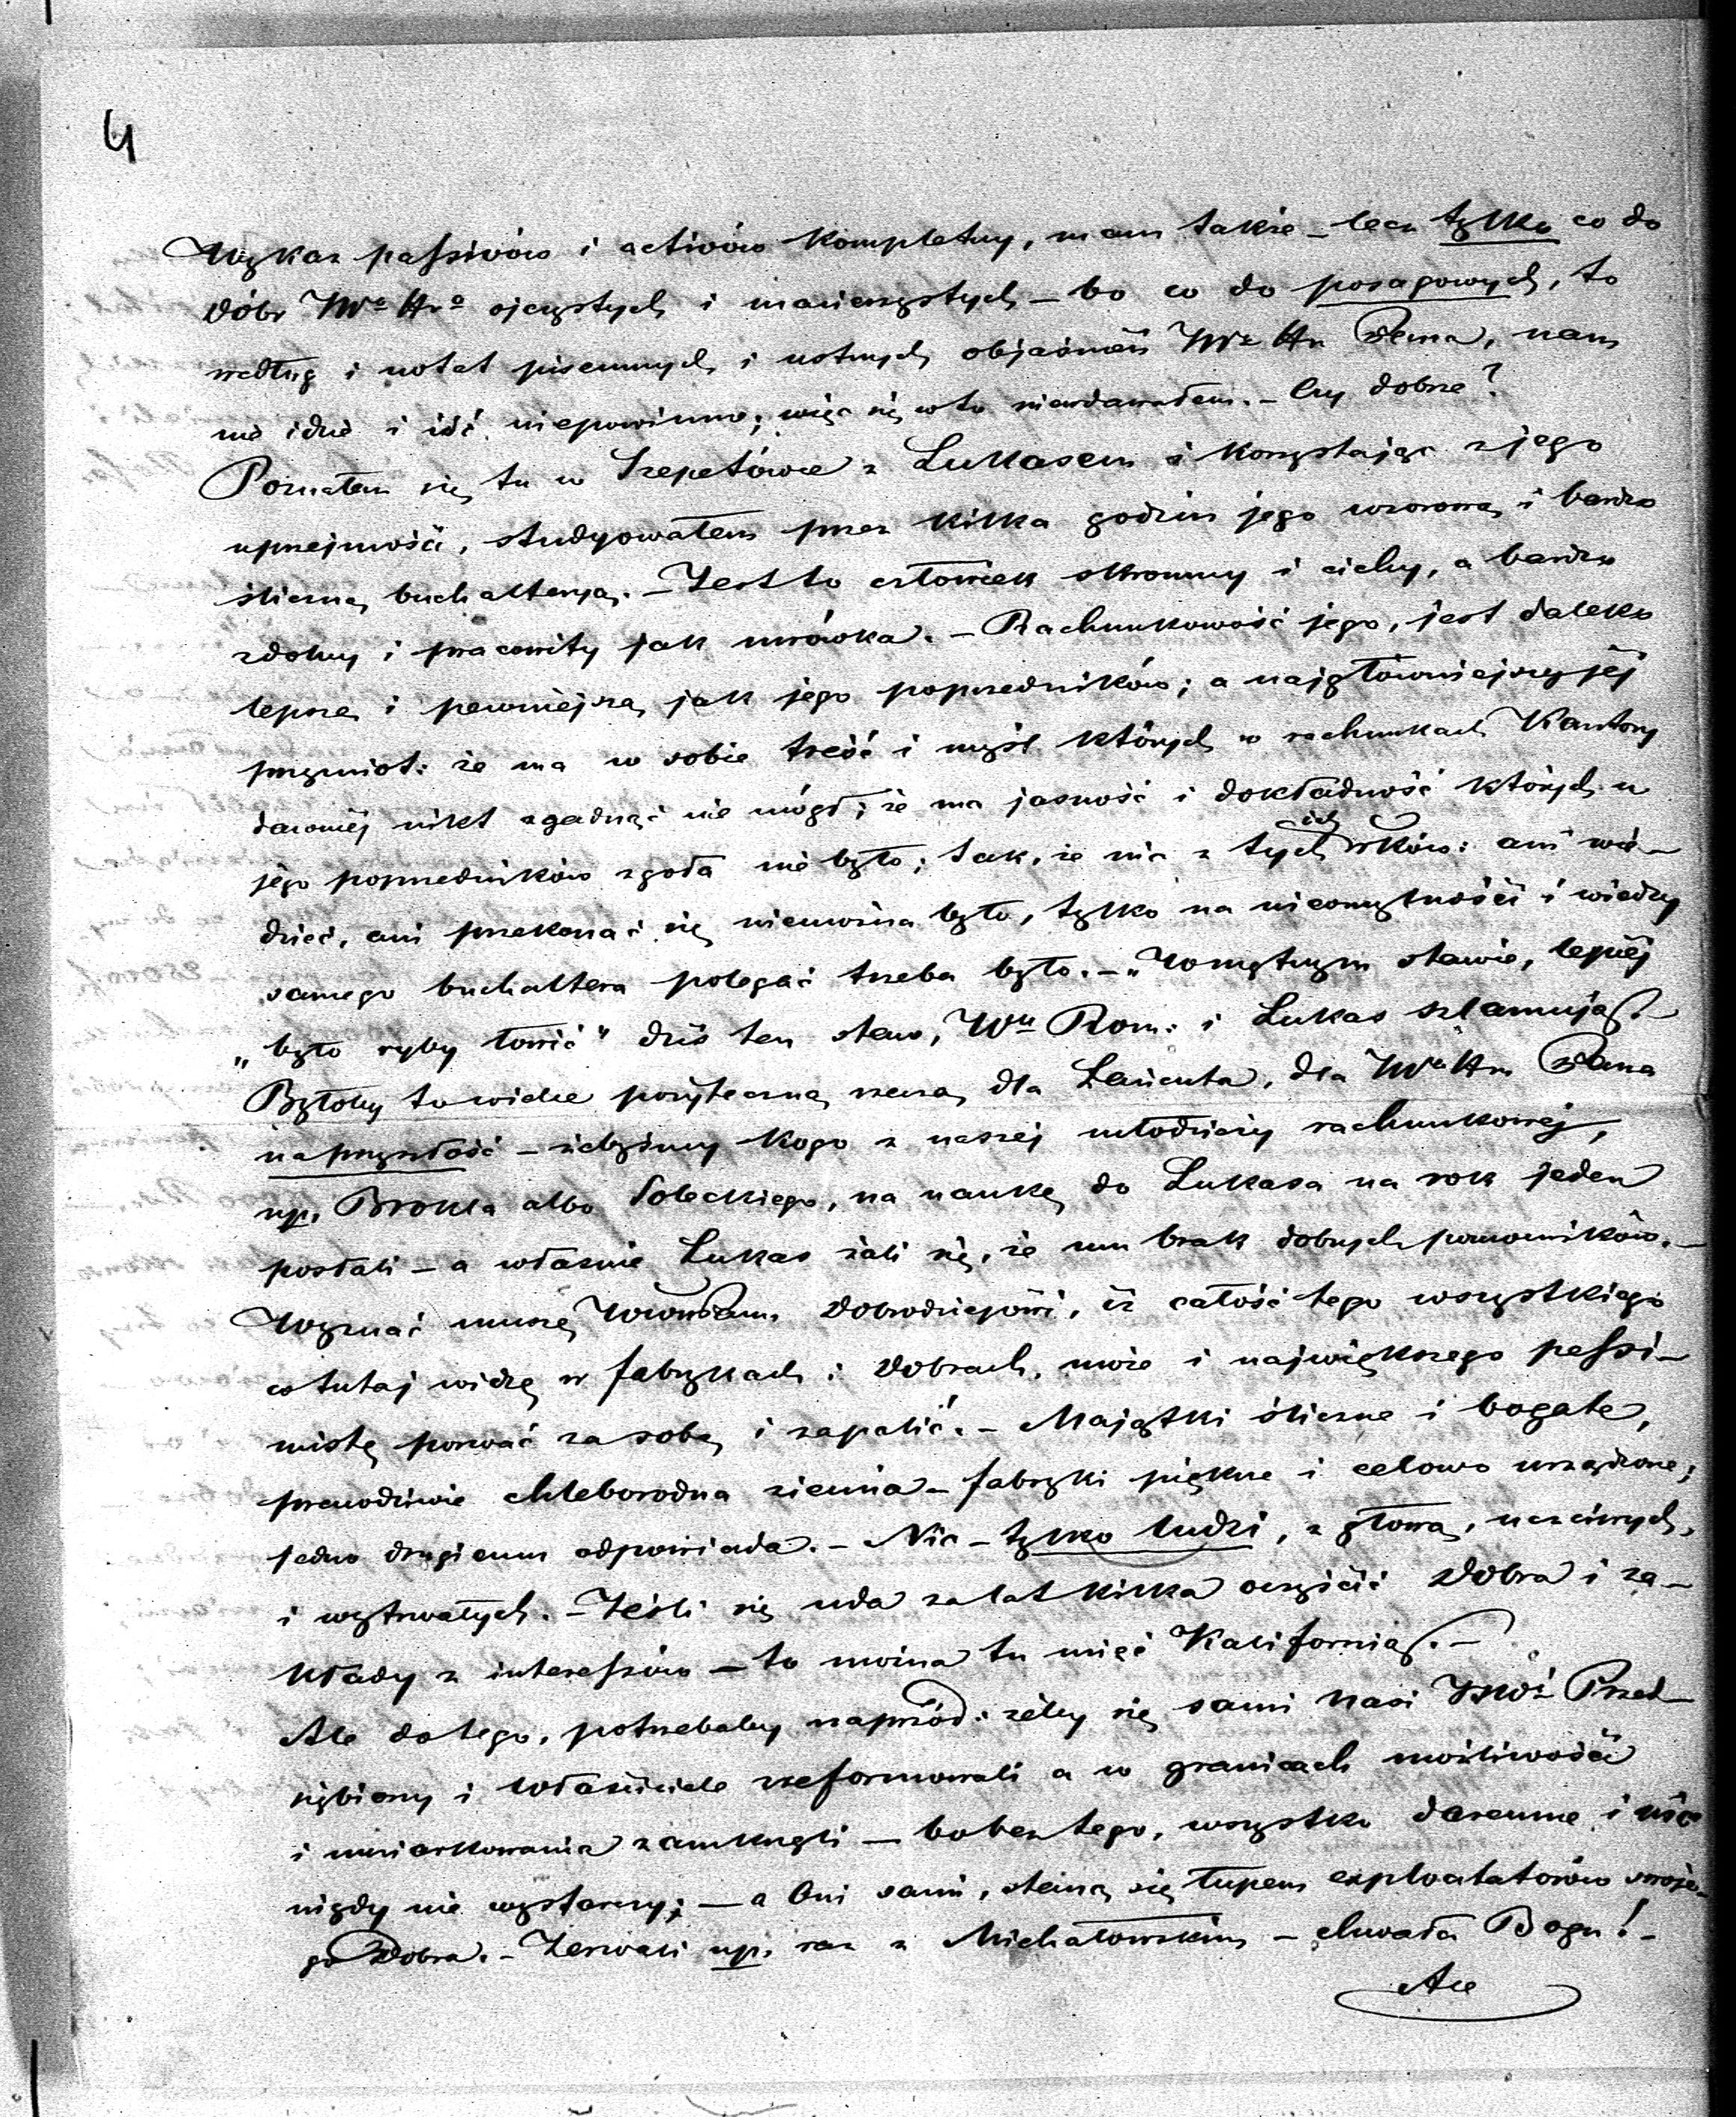 4
Wykaz passivów i activów kompletny, mam także – lecz tylko co do
dóbr JWo Hro ojczystych i macierzystych – bo co do posagowych, to
według i notat pisemnych i ustnych objaśnień JWo Hr Pana, nam
nie idzie i iść niepowinno; więc się w to niewdawałem. – Czy dobrze?
Poznałem się tu w Szepetówce z Lukasem i korzystając z jego
uprzejmości, studyowałem przez kilka godzin jego wzorową i bardzo
śliczną buchalterją. – Jest to człowiek skromny i cichy, a bardzo
zdolny i pracowity jak mrówka. – Rachunkowość jego, jest daleko
lepszą i pewniejszą jak jego poprzedników; a najgłówniejszy jéj
przymiot: że ma w sobie treść i myśl których w rachunkach Kantory
dawniéj nikt zgadnąć nie mógł; że ma jasność i dokładność których u
jego poprzedników zgoła nie było; tak, że nic z tych ich : ani wie-
dzieć, ani przekonać się niemożna było, tylko na nieomylności i wiedzy
samego buchaltera polegać trzeba było. – „W mętnym stawie, lepiéj
„było ryby łowić" dziś ten staw, Wny Rom: i Lukas szlamują. –
Byłoby to wielce pożyteczną rzeczą dla Łańcuta, dla JWo Hr Pana
na przyszłość – żebyśmy kogo z naszej młodzieży rachunkowéj,
np. Brokla albo Soleckiego, na naukę do Lukasa na rok jeden
posłali – a właśnie Lukas żali się, że mu brak dobrych pomocników. –
Wyznać muszę WWnPanu Dobrodziejowi, iż całość tego wszystkiego
co tutaj widzę w fabrykach i Dobrach, może i największego pessi-
mistę porwać za sobą i zapalić. – Majątki śliczne i bogate,
prawdziwie chleborodna ziemia – fabryki piękne i celowo urządzone;
jedno drugiemu odpowiada. – Nic – tylko ludzi, z głową, uczciwych,
i wytrwałych. – Jeśli się uda za lat kilka oczyścić Dobra i za-
kłady z interessów – to można tu mieć Kalifornią. –
Ale do tego, potrzebaby naprzód: żeby się sami nasi JWW Przed-
siębiorcy i Właściciele zreformowali a w granicach możliwości
i umiarkowania zamknęli – bo bez tego, wszystko daremne i nic
nigdy nie wystarczy; – a Oni sami, staną się łupem exploatatorów swoje-
go Dobra. – Zerwali np. raz z Michałowskim – chwała Bogu! –
Ale